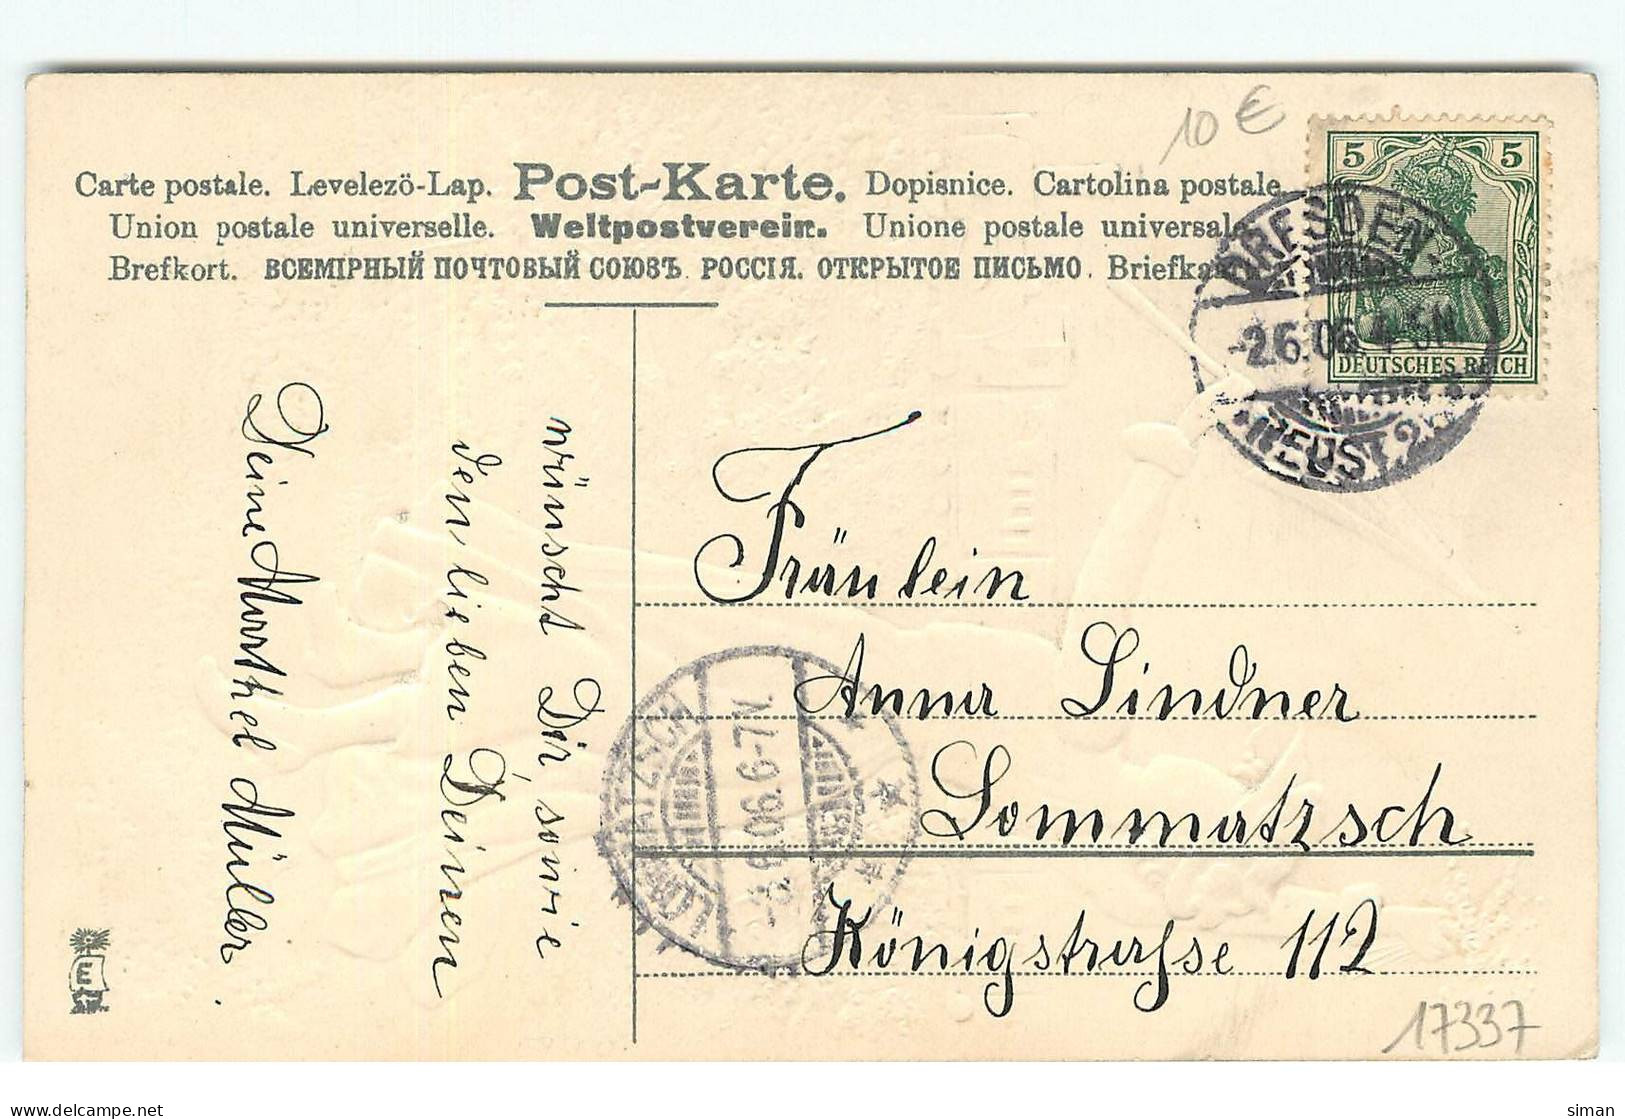 10 €
Carte postale. Levelezö-Lap. Post-Karte. Dopisnice. Cartolina postale
Union postale universelle. Weltpostverein. Unione postale universale
Brefkort. ВСЕМІРНЫЙ ПОЧТОВЫЙ СОЮЗЪ. РОССІЯ. ОТКРЫТОЕ ПИСЬМО. Briefka
5 5
DEUTSCHES REICH
DRESDEN
-2.6.06. 4-5N
NEUST. 2
wünscht Dir, sowie
den lieben Deinen
Deine Marthel Müller.
Fräulein
Anna Lindner
Lommatzsch
Königstraſse 112
LOMMATZSCH
6.06. 6-7N.
E
17337
siman
delcampe.net